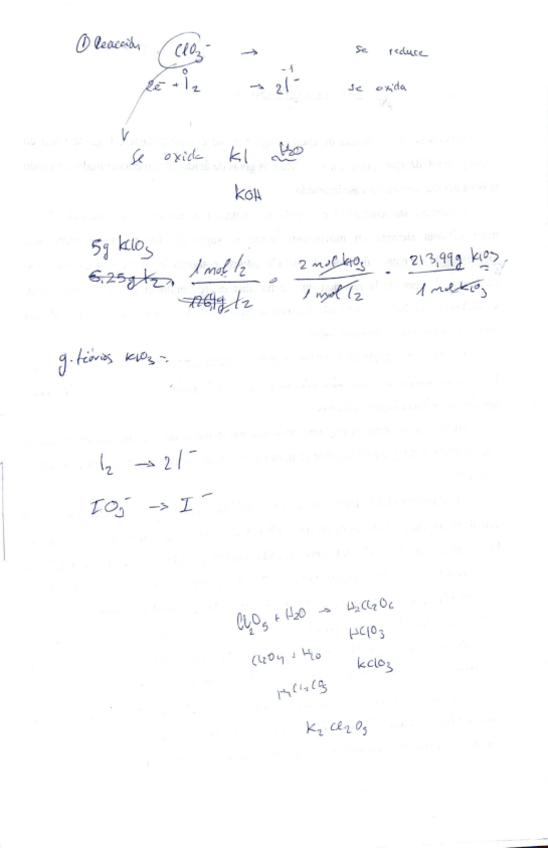 ① Reacción ClO₃⁻ → se reduce
2e⁻ + I₂⁰ → 2I⁻ ⁻¹ se oxida
Se oxida KI H₂O
KOH
5g KClO₃
6.25g I₂ · 1 mol I₂ / 126,9g I₂ · 2 mol KIO₃ / 1 mol I₂ · 213,99g KIO₃ / 1 mol KIO₃
g. teóricos KIO₃ =
I₂ → 2I⁻
IO₃⁻ → I⁻
Cl₂O₅ + H₂O → H₂Cl₂O₆
HClO₃
KClO₃
K₂Cl₂O₅